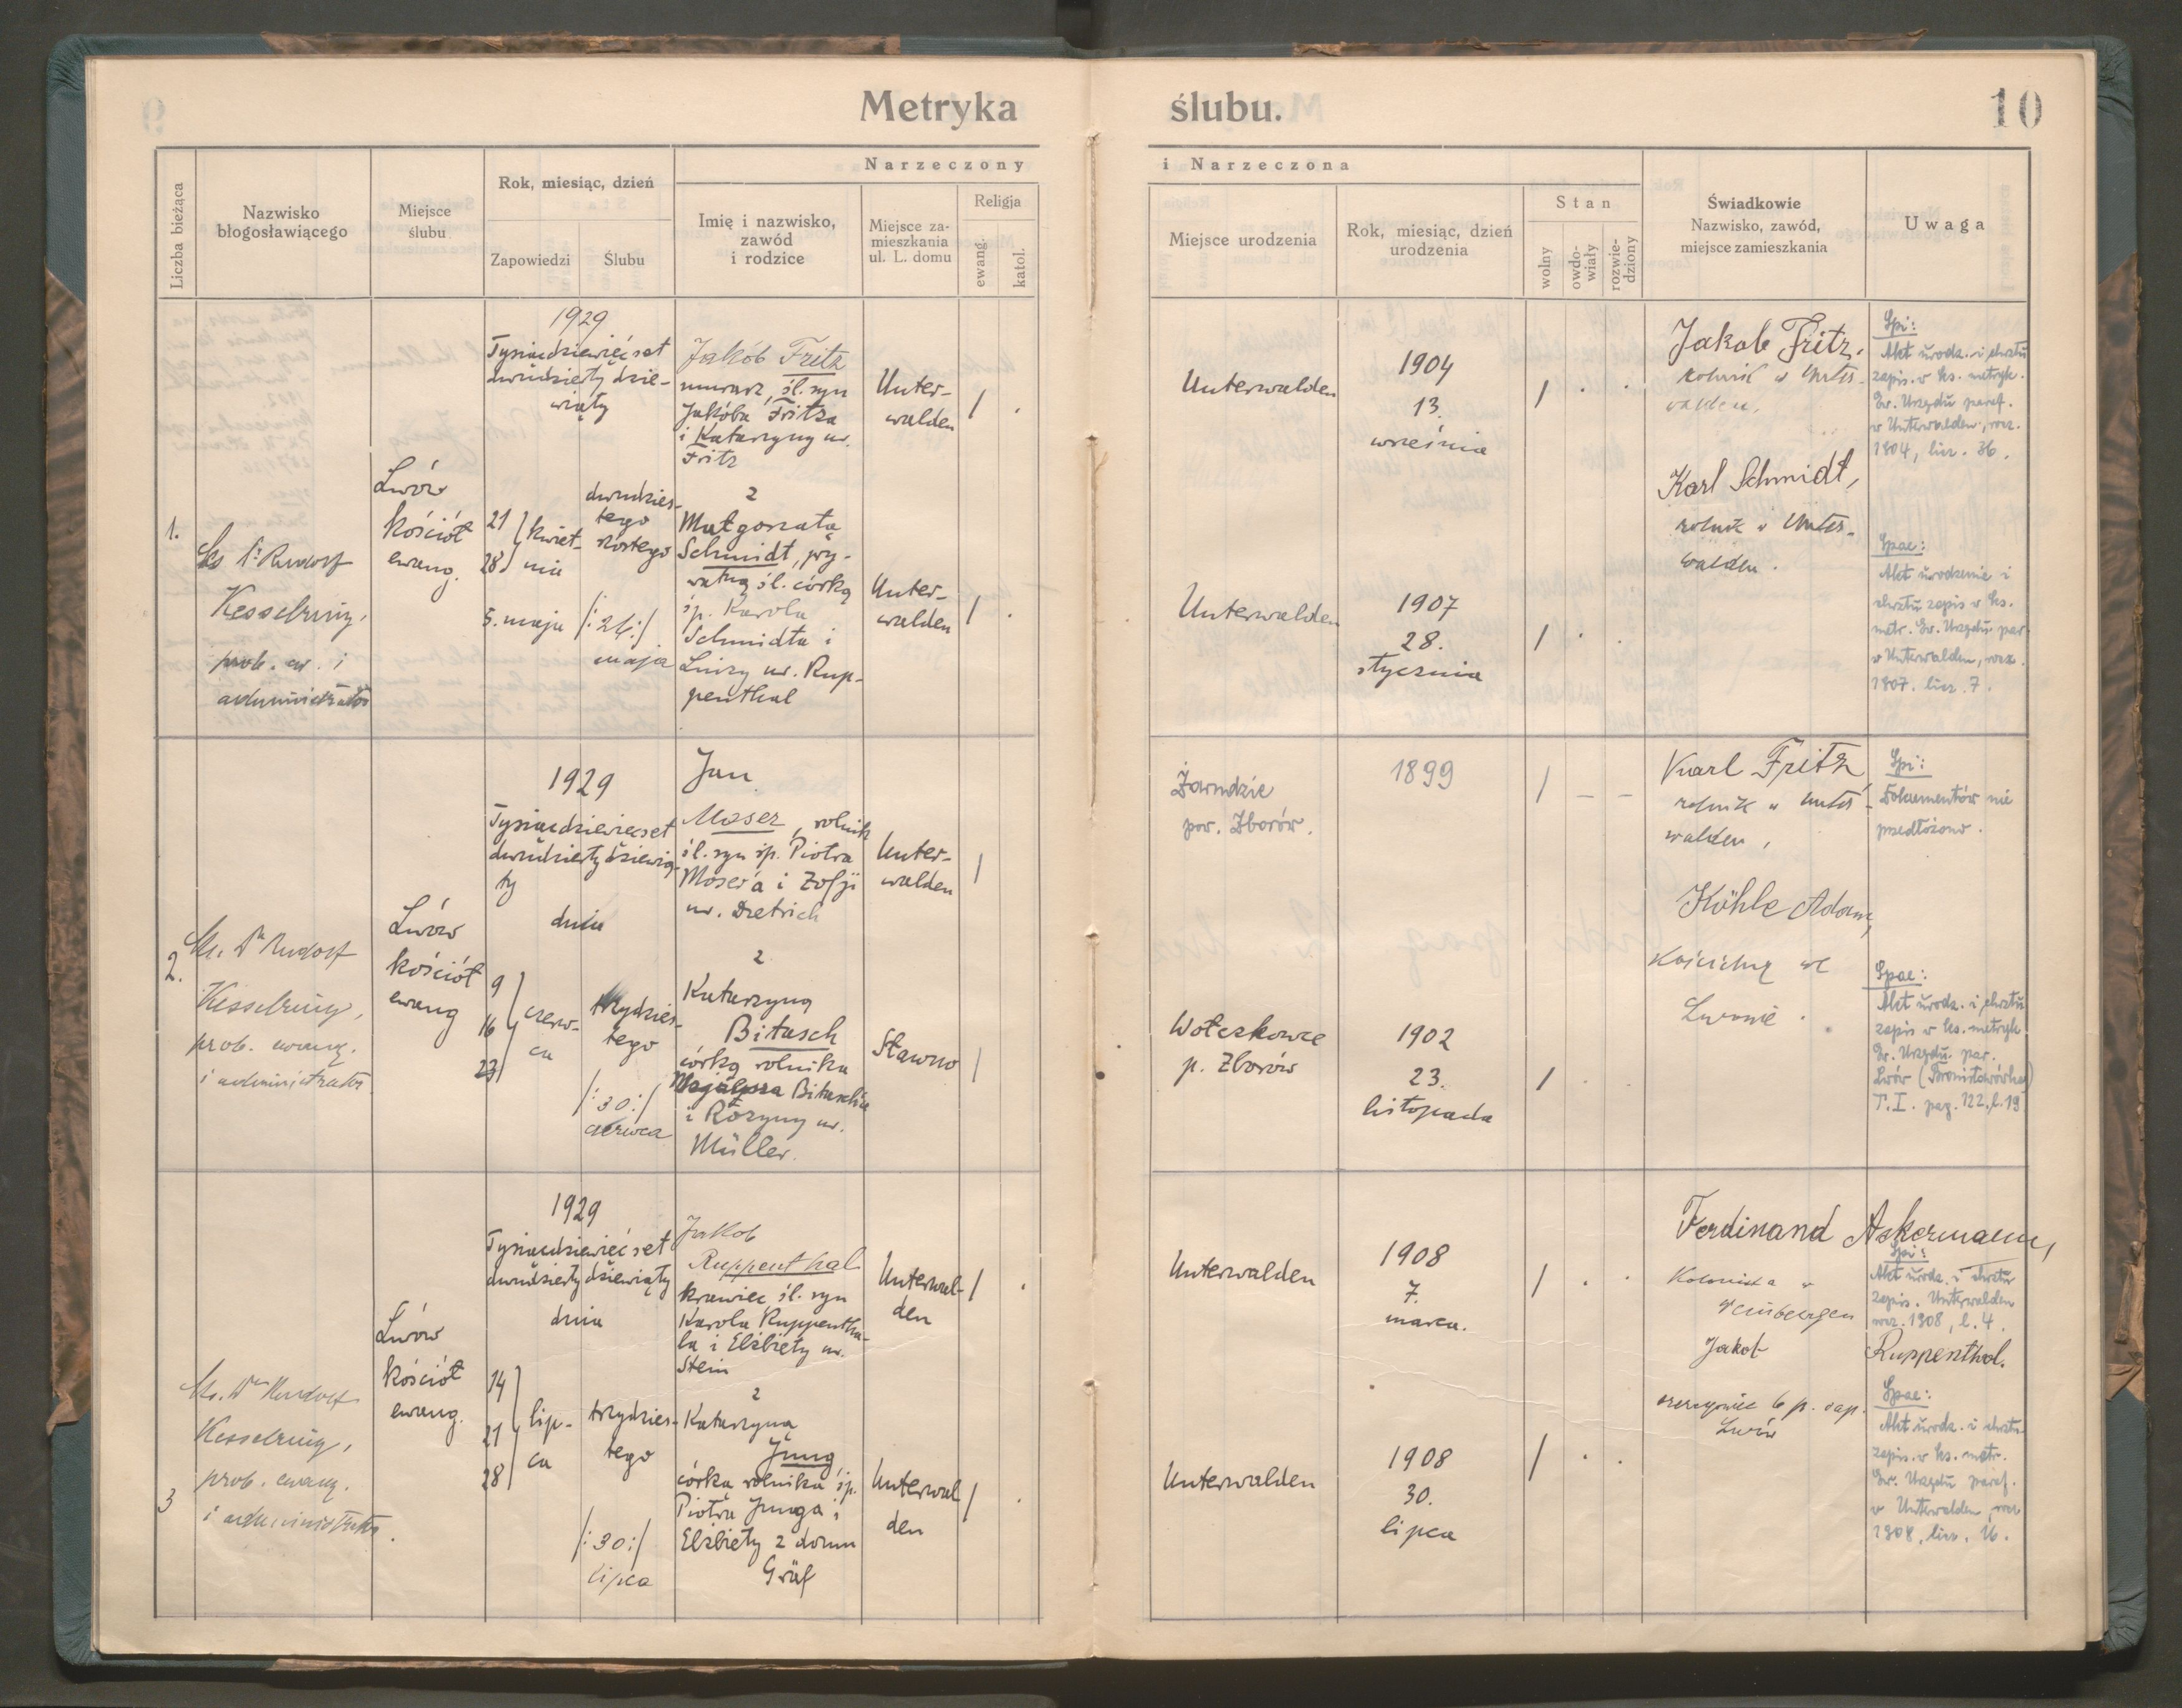 Metryka ślubu.
10
Liczba bieżąca
Nazwisko
błogosławiącego
Miejsce
ślubu
Rok, miesiąc, dzień
Zapowiedzi
Ślubu
Narzeczony
Imię i nazwisko,
zawód
i rodzice
Miejsce za-
mieszkania
ul. L. domu
Religja
ewang.
katol.
i Narzeczona
Miejsce urodzenia
Rok, miesiąc, dzień
urodzenia
Stan
wolny
owdo-
wiały
rozwie-
dziony
Świadkowie
Nazwisko, zawód,
miejsce zamieszkania
Uwaga
1.
Ks. Dr Rudolf
Kesselring,
prob. ew. i
administrator
Lwów
kościół
ewang.
1929
Tysiącdziewięćset
dwudziesty dzie-
wiąty
21
28
kwiet-
nia
5. maja
dwudzies-
tego
szóstego
/:26:/
maja
Jakób Fritz
murarz, śl. syn
Jakóba Fritza
i Katarzyny ur.
Fritz
z
Małgorzatą
Schmidt, pry-
watną śl. córką
śp. Karola
Schmidta i
Luizy ur. Rup-
penthal
Unter-
walden
/
.
Unter-
walden
/
.
Unterwalden
1904
13.
września
/ . .
Unterwalden
1907
28.
stycznia
/ . .
Jakob Fritz,
rolnik w Unter-
walden,
Karl Schmidt,
rolnik w Unter-
walden.
Spi:
Akt urodz. i chrztu
zapis. w ks. metryk.
Ew. Urzędu paraf.
w Unterwalden, rocz.
1904, licz. 36.
Spae:
Akt urodzenia i
chrztu zapis w ks.
metr. Ew. Urzędu par.
w Unterwalden, rocz.
1907. licz. 7.
2.
Ks. Dr Rudolf
Kesselring,
prob. ewang.
i administrator
Lwów
kościół
ewang
1929
Tysiącdziewięcset
dwudziesty dziewią-
ty
dnia
9
16
23
czerw-
ca
trzydzies-
tego
/:30:/
czerwca
Jan
Moser, rolnik
śl. syn śp. Piotra
Moser'a i Zofji
ur. Dietrich
z
Katarzyną
Bitusch
córką rolnika
Bituscha
i Rozyny ur.
Müller.
Unter-
walden
/
Sławno
/
Zarudzie
pow. Zborów.
1899
/ – –
Wołczkowce
p. Zborów
1902
23.
listopada
/ . .
Karl Fritz
rolnik w Unter-
walden,
Köhle Adam,
kościelny we
Lwowie.
Spi:
Dokumentów nie
przedłożono.
Spae:
Akt urodz. i chrztu
zapis w ks. metryk
Ew. Urzędu par.
Lwów (Bronisławówka)
T. I. pag. 122, l. 19
3
Ks. Dr Rudolf
Kesselring,
prob. ewang.
i administrator.
Lwów
kościół
ewang.
1929
Tysiącdziewięćset
dwudziesty dziewiąty
dnia
14
21
28
lip-
ca
trzydzies-
tego
/:30:/
lipca
Jakob
Ruppenthal
krawiec śl. syn
Karola Ruppentha-
la i Elżbiety ur.
Stein
z
Katarzyną
Jung,
córką rolnika śp.
Piotra Junga i
Elżbiety z domu
Gräf
Unterwal-
den
/
.
Unterwal
den
/
.
Unterwalden
1908
7.
marca.
/ . .
Unterwalden
1908
30.
lipca
/ . .
Ferdinand Ackermann,
Kolonista w
Weinbergen
Jakob Ruppenthal.
szeregowiec 6 p. sap.
Lwów
Spi:
Akt urodz. i chrztu
zapis. Unterwalden
rocz. 1908, l. 4.
Spae:
Akt urodz. i chrztu
zapis. w ks. metr.
Ew. Urzędu paraf.
w Unterwalden, rocz.
1908, licz. 16.